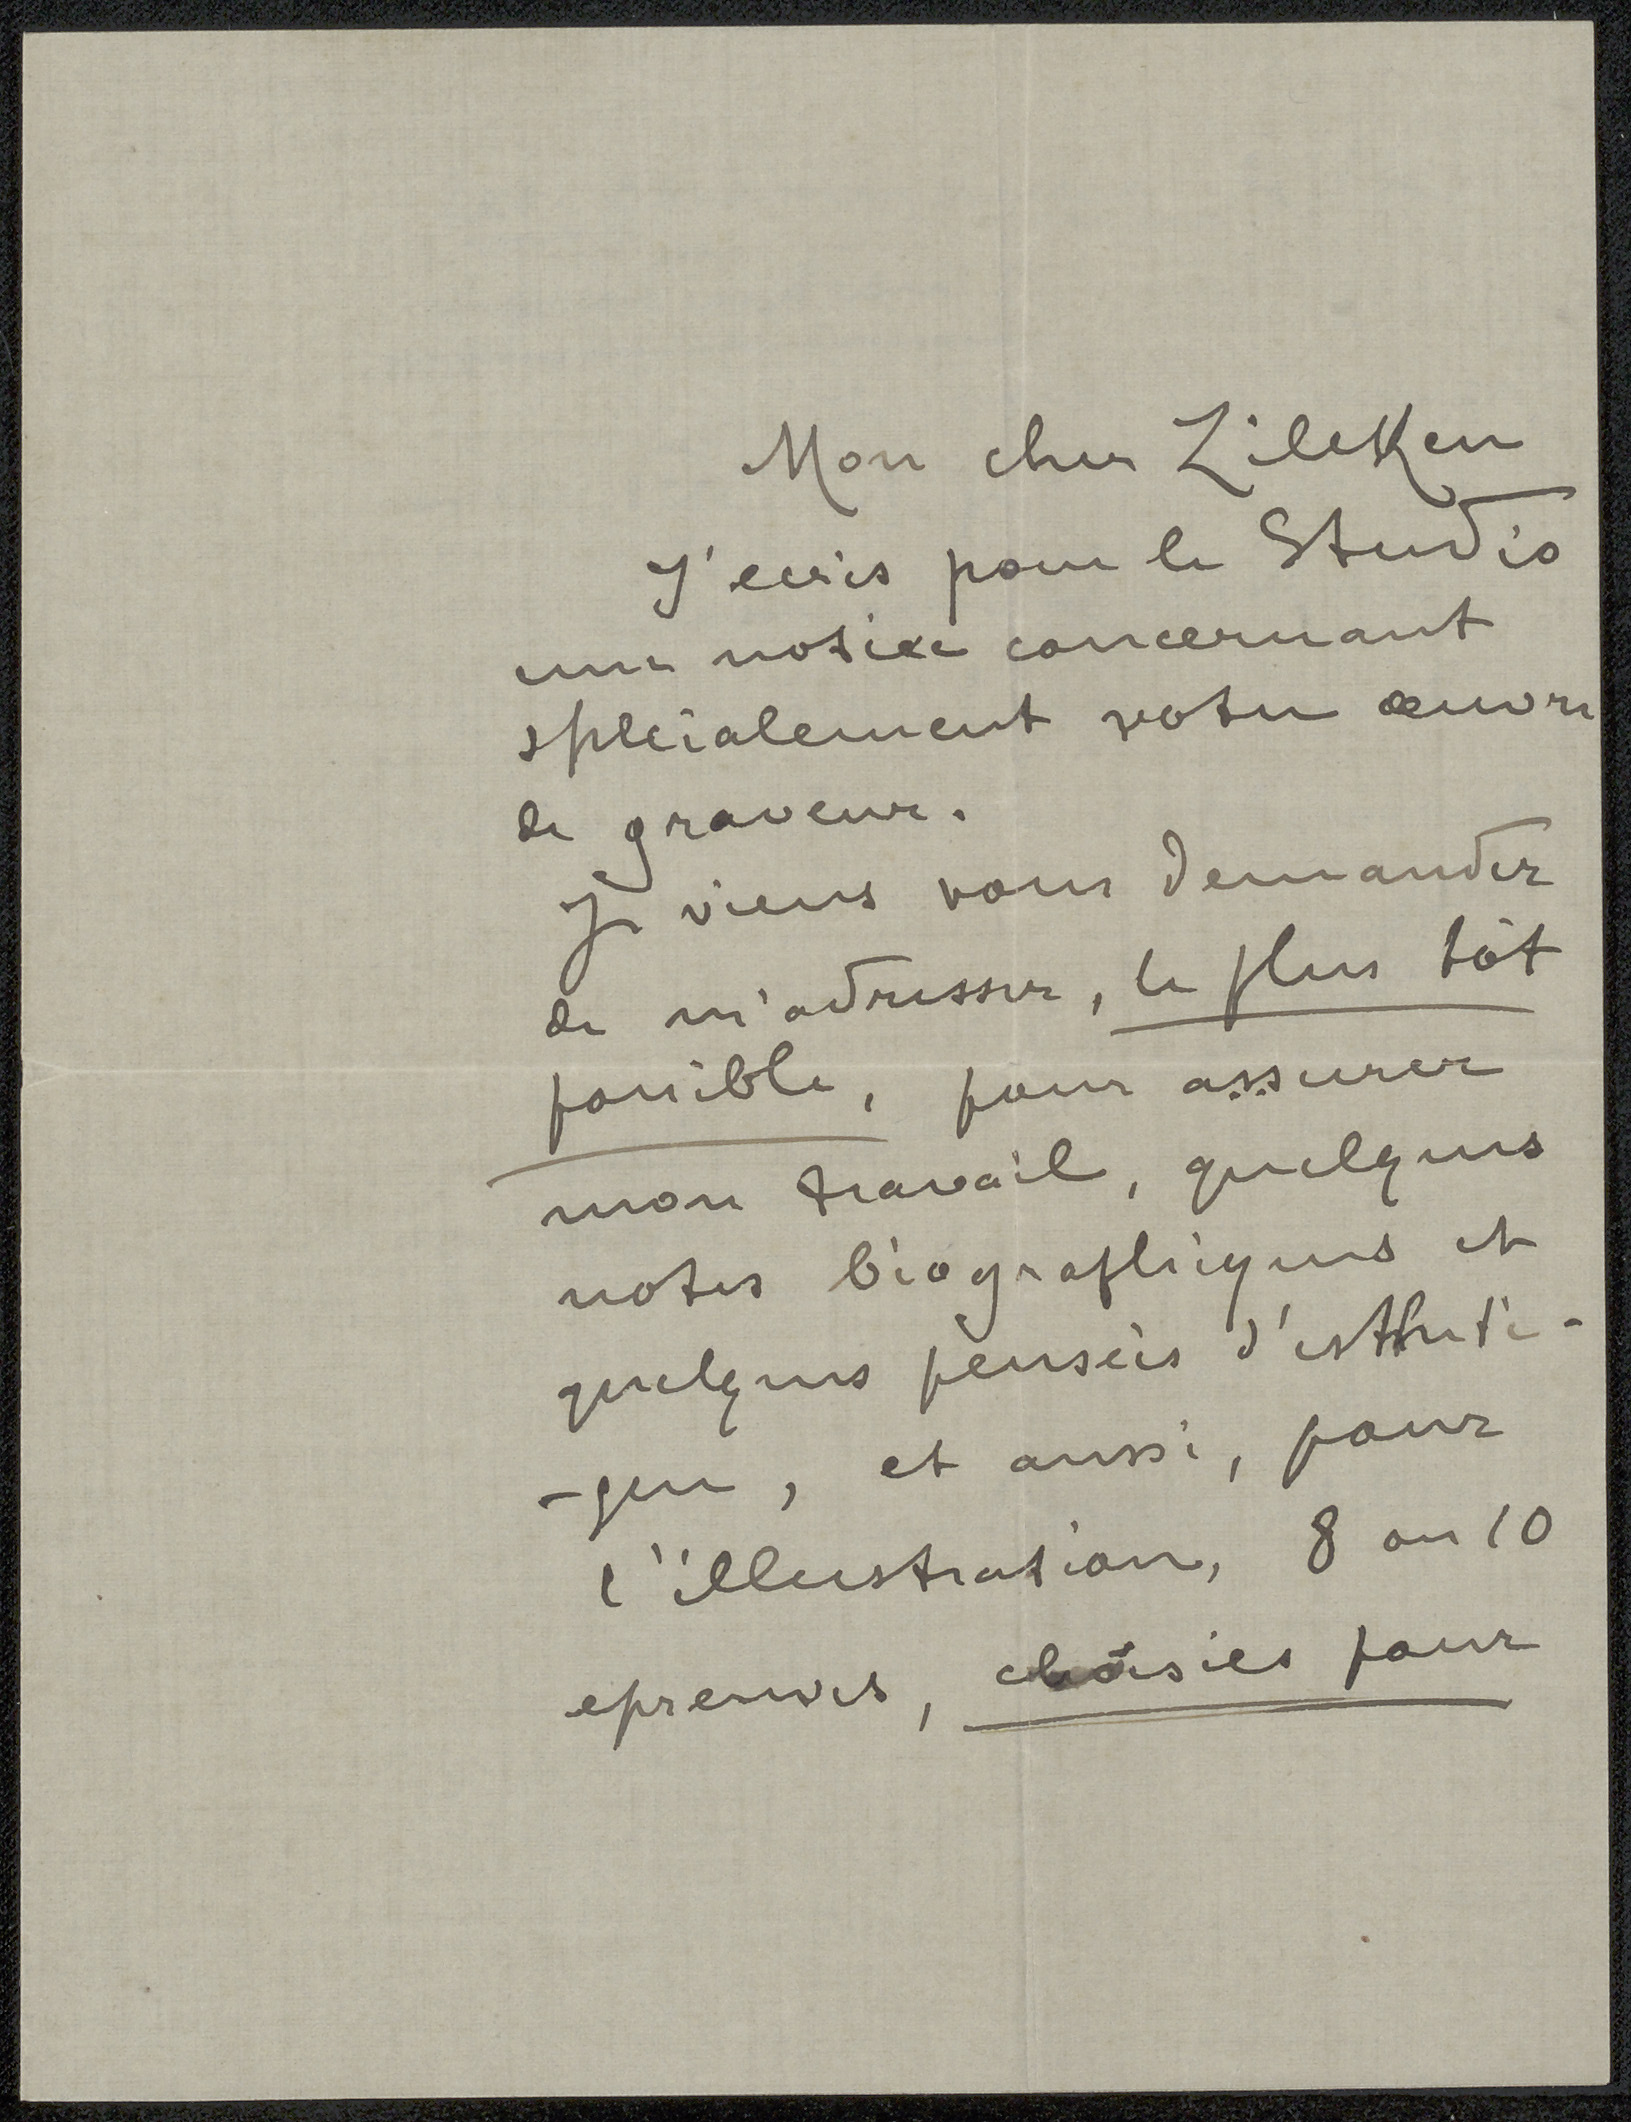 Mon cher Zilcken
J'ecris pour le Studio
une notice concernant
spécialement votre œuvre
de graveur.
Je viens vous demander
de m'adresser, le plus tôt
possible, pour assurer
mon travail, quelques
notes biografhiques et
quelques pensées d'estheti-
-que, et aussi, pour
l'illustration, 8 ou 10
epreuves, choisies pour